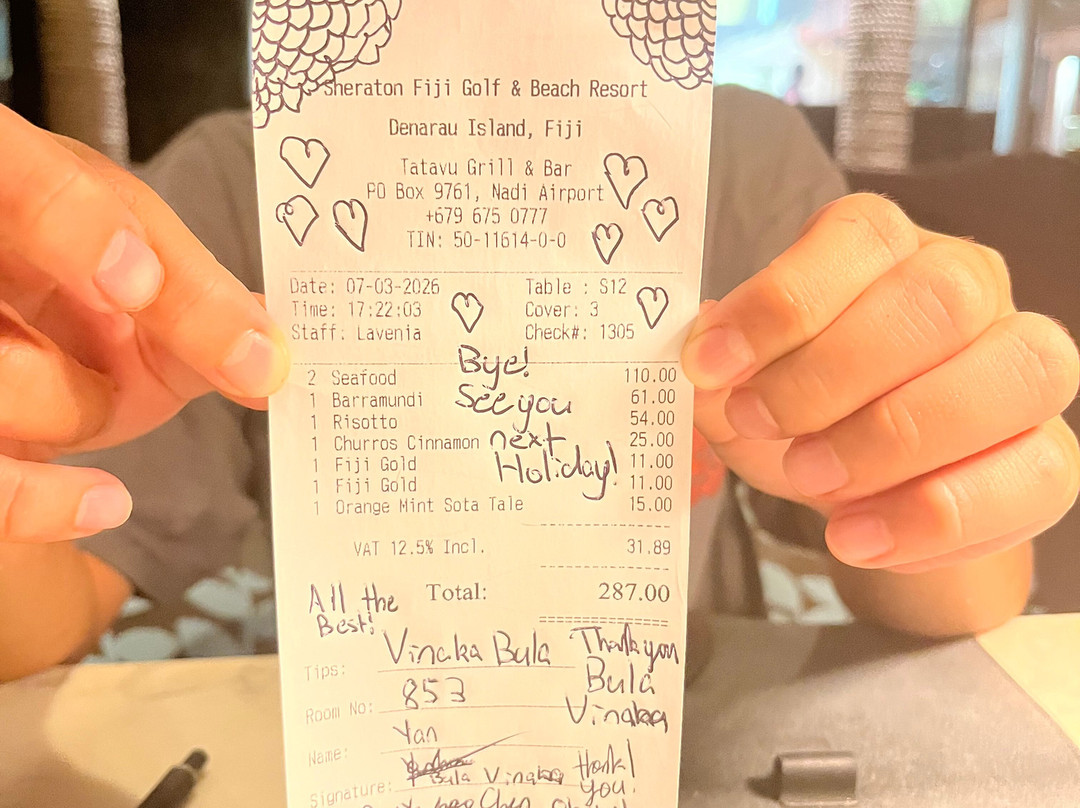 Sheraton Fiji Golf & Beach Resort
Denarau Island, Fiji
Tatavu Grill & Bar
PO Box 9761, Nadi Airport
+679 675 0777
TIN: 50-11614-0-0
Date: 07-03-2026 Table : S12
Time: 17:22:03 Cover: 3
Staff: Lavenia Check#: 1305
Bye!
See you
next
Holiday!
2 Seafood 110.00
1 Barramundi 61.00
1 Risotto 54.00
1 Churros Cinnamon 25.00
1 Fiji Gold 11.00
1 Fiji Gold 11.00
1 Orange Mint Sota Tale 15.00
VAT 12.5% Incl. 31.89
Total: 287.00
All the
Best!
Tips: Vinaka Bula
Thank you
Bula
Vinaka
Room No: 853
Name: Yan
Signature: Bula Vinaka
Thank
you!